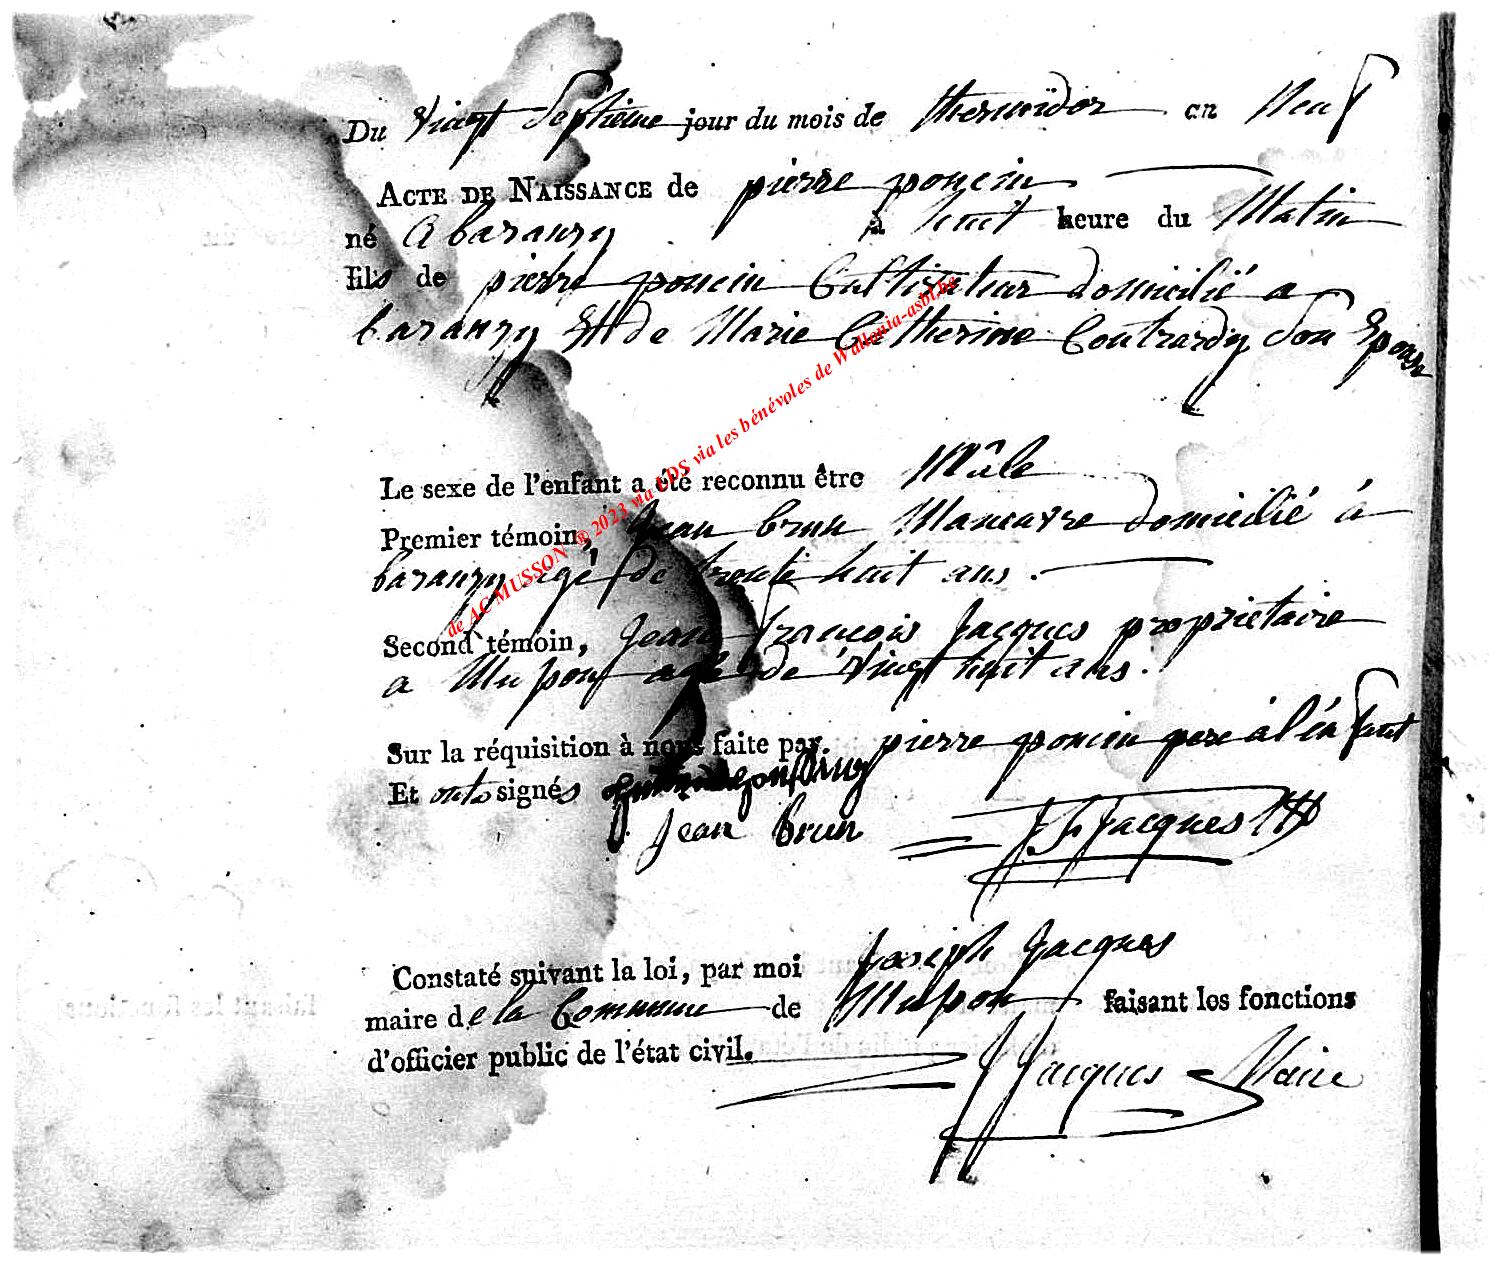 Du vingt Septieme jour du mois de thermidor an Neuf
ACTE DE NAISSANCE de pierre poncin
né a baranzy à huit heure du Matin
fils de pierre poncin Cultivateur domicilié a
baranzy Et de Marie Catherine Contrardy Son Epouse
Le sexe de l'enfant a été reconnu être Mâle
Premier témoin, Jean brun Maneuvre domicilié à
baranzy agé de trente huit ans.
Second témoin, Jean françois Jacques proprietaire
a Musson agé de vingt huit ans.
Sur la réquisition à nous faite par. pierre poncin pere à l'enfant
Et onts signés
Jean brun JF Jacques
Constaté suivant la loi, par moi Joseph Jacques
maire de la Commune de Musson faisant les fonctions
d'officier public de l'état civil. J Jacques Maire
de AC MUSSON ® 2023 via UDS via les bénévoles de Wallonia-asbl.be